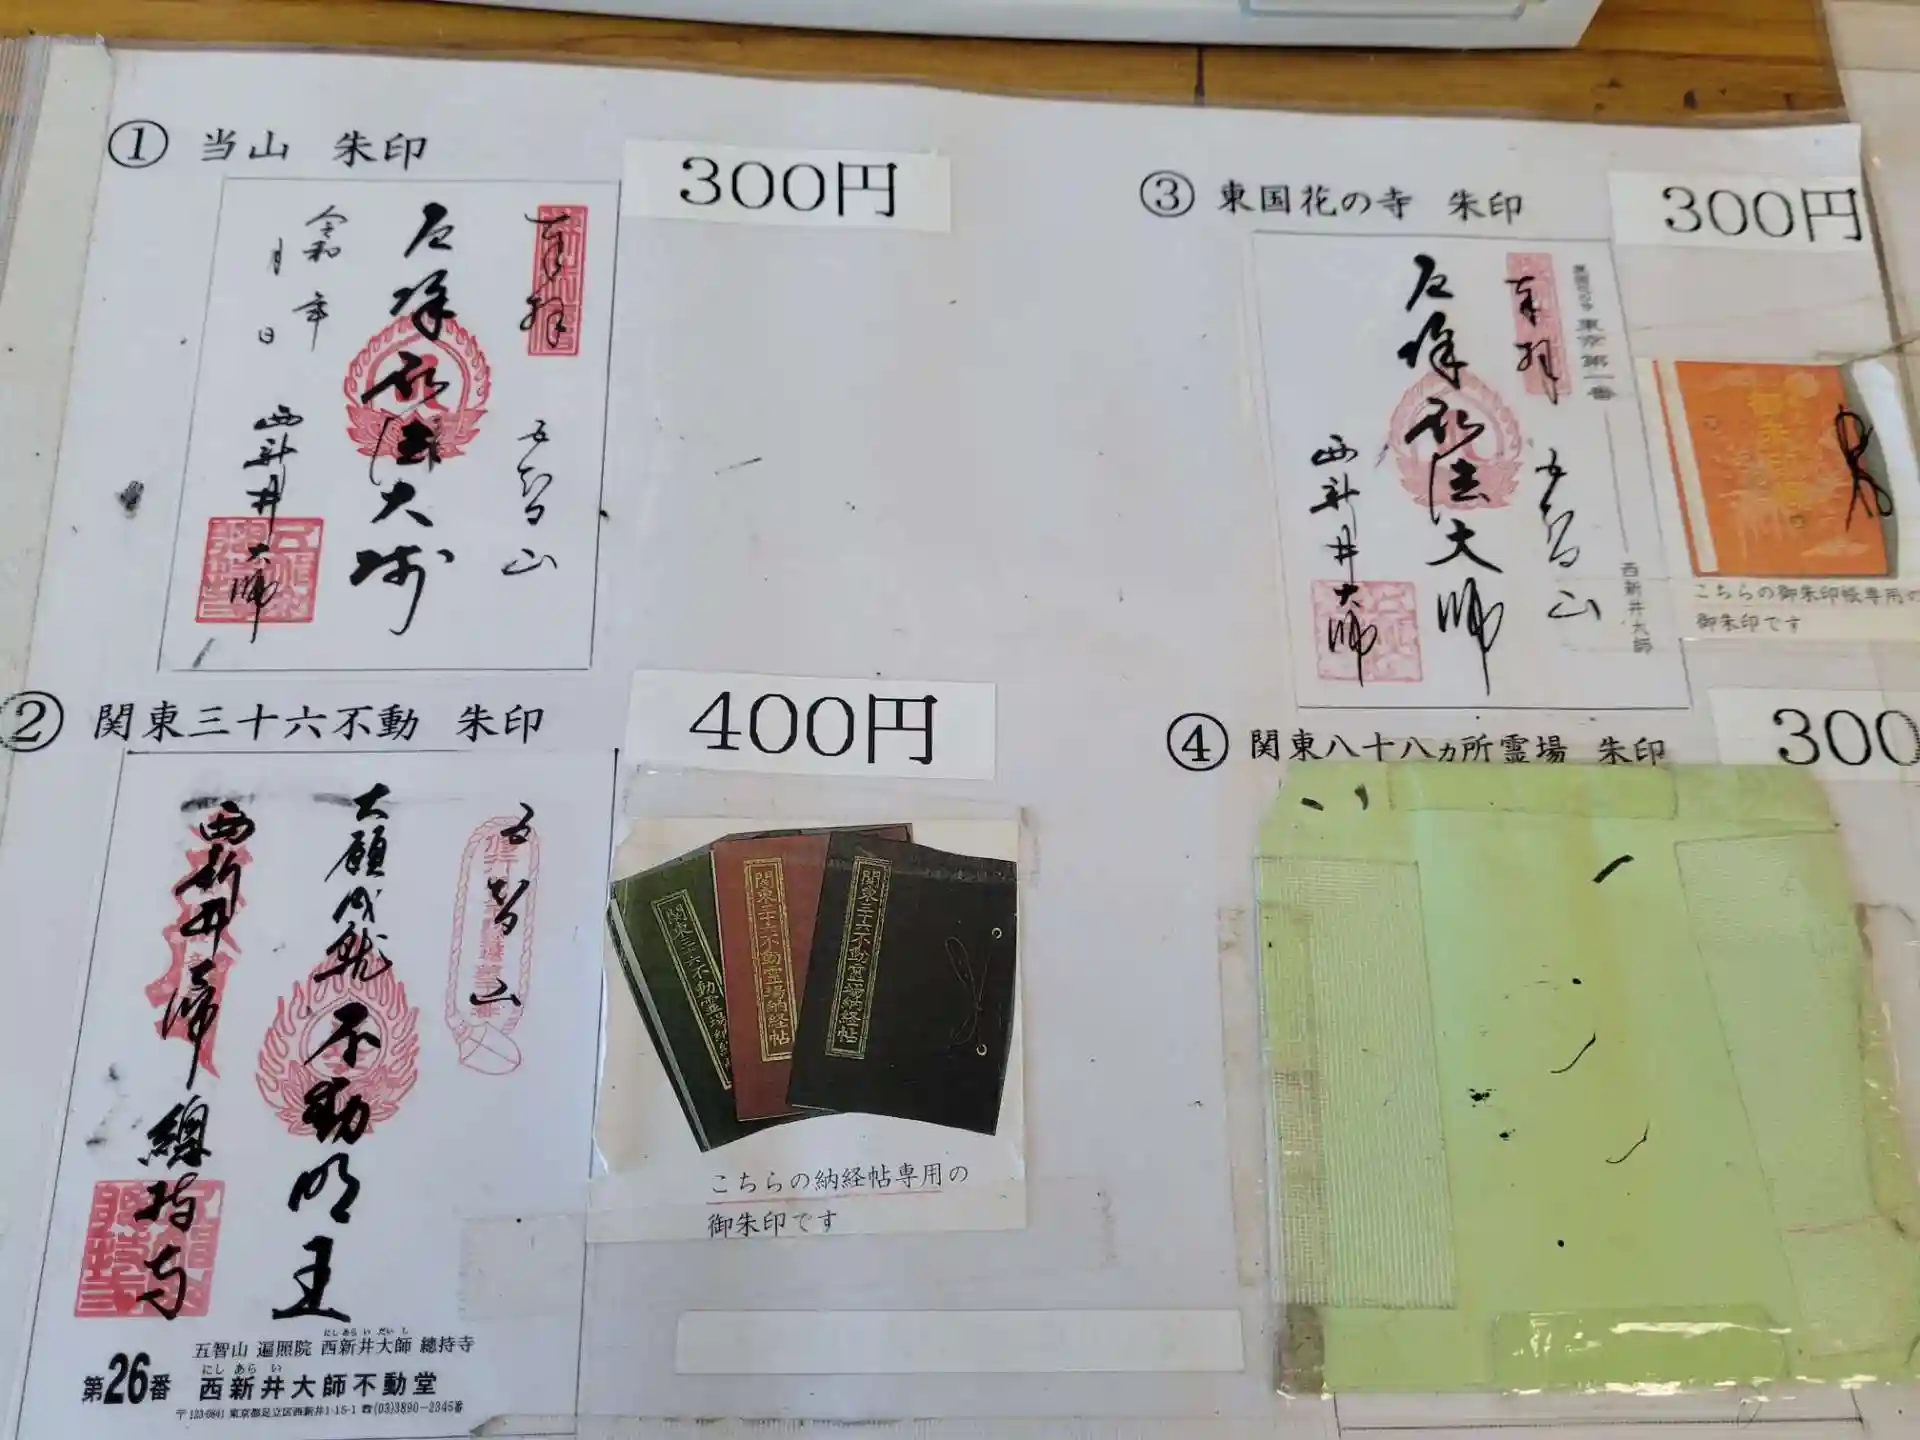 ① 当山 朱印
300円
奉拝
五智山
厄除弘法大師
令和 年
月 日
西新井大師
② 関東三十六不動 朱印
400円
五智山
大願成就 不動明王
西新井大師 總持寺
五智山 遍照院 西新井大師 總持寺
にしあらいだいし
第26番
にしあらい
西新井大師不動堂
東京都足立区西新井1-15-1 ☎(03)3890-2345番
関東三十六不動霊場納経帖
関東三十六不動霊場納経帖
関東三十六不動霊場納経
こちらの納経帖専用の
御朱印です
③ 東国花の寺 朱印
300円
東京第一番
西新井大師
奉拝
五智山
厄除弘法大師
西新井大師
こちらの御朱印帳専用の
御朱印です
④ 関東八十八ヵ所霊場 朱印
300